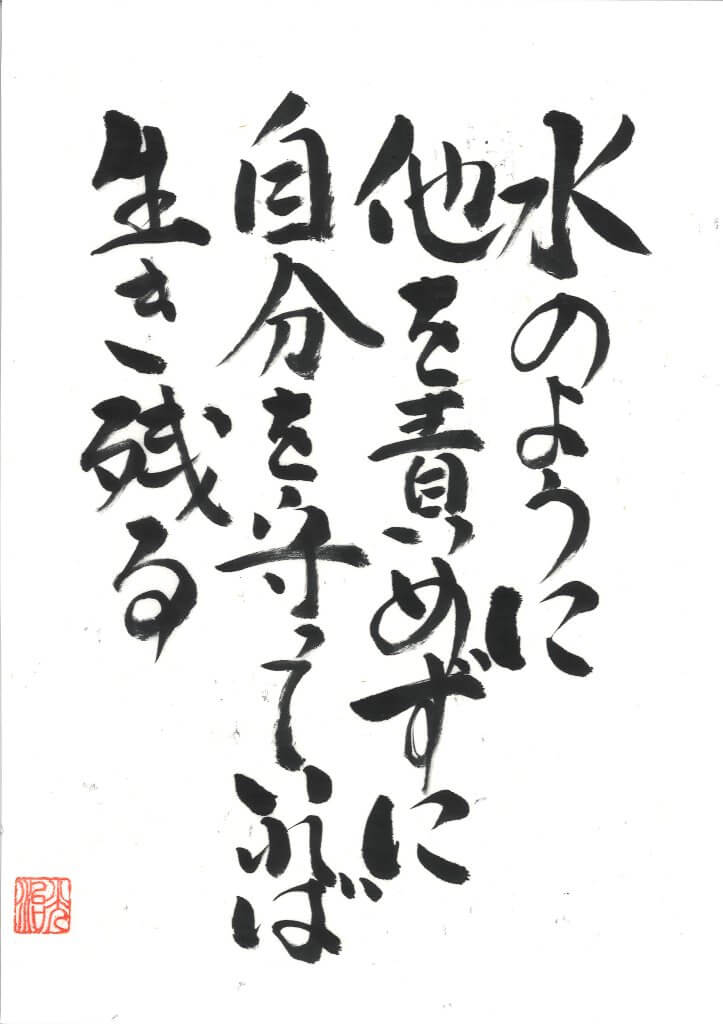 水のように
他を責めずに
自分を守っていれば
生き残る